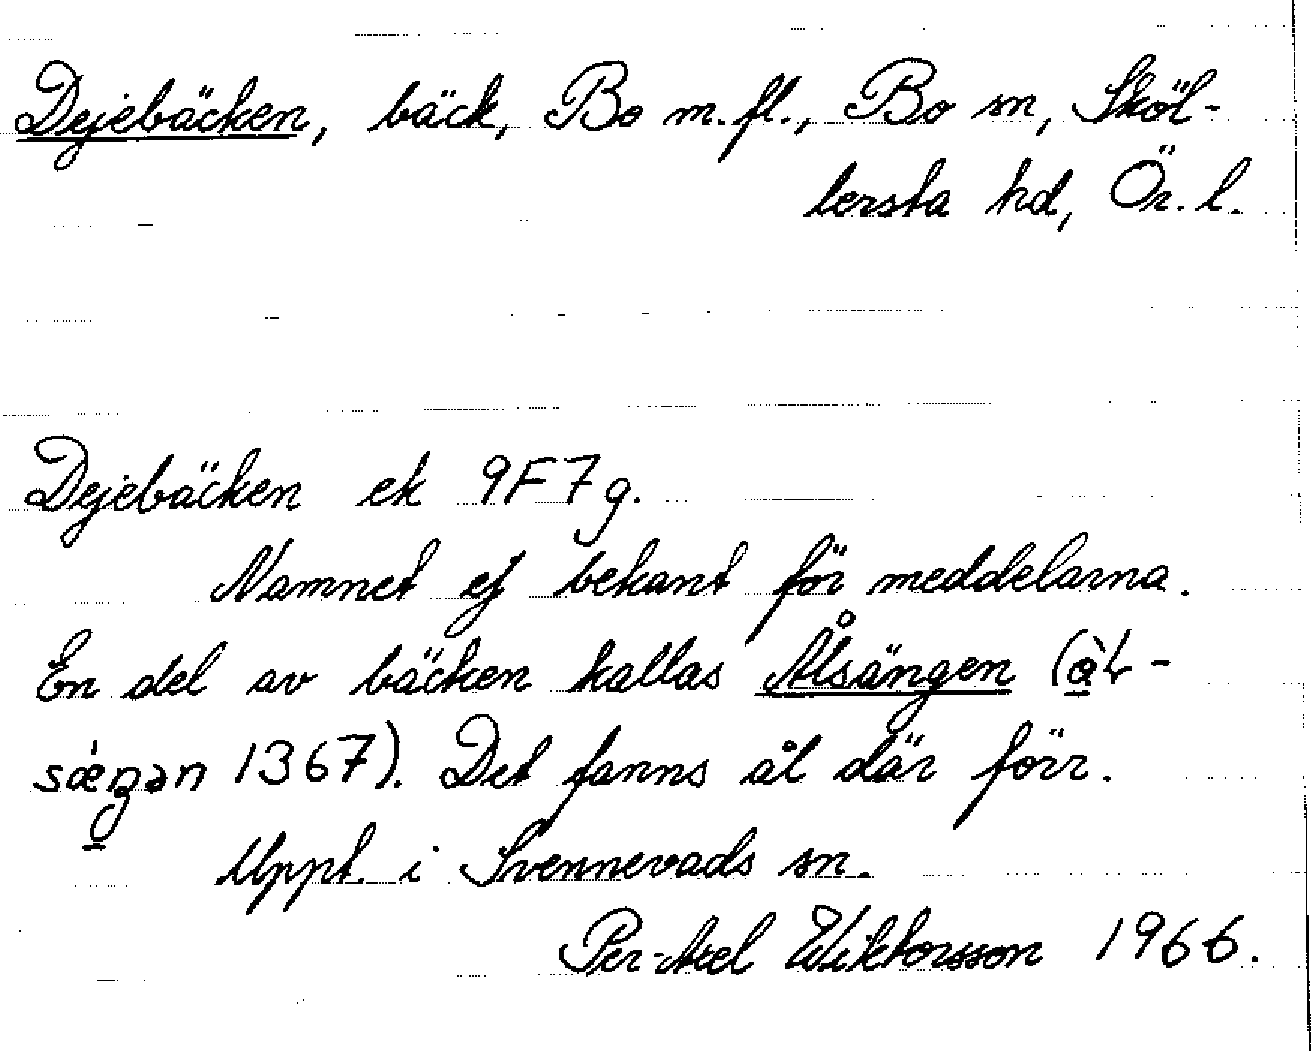 Dejebäcken, bäck, Bo m.fl., Bo sn, Sköl-
lersta hd, Ör. l.
Dejebäcken ek 9F7g.
Namnet ej bekant för meddelarna.
En del av bäcken kallas Ålsängen (
1367). Det fanns ål där förr.
Uppt. i Svennevads sn.
Per-Axel Wiktorsson 1966.